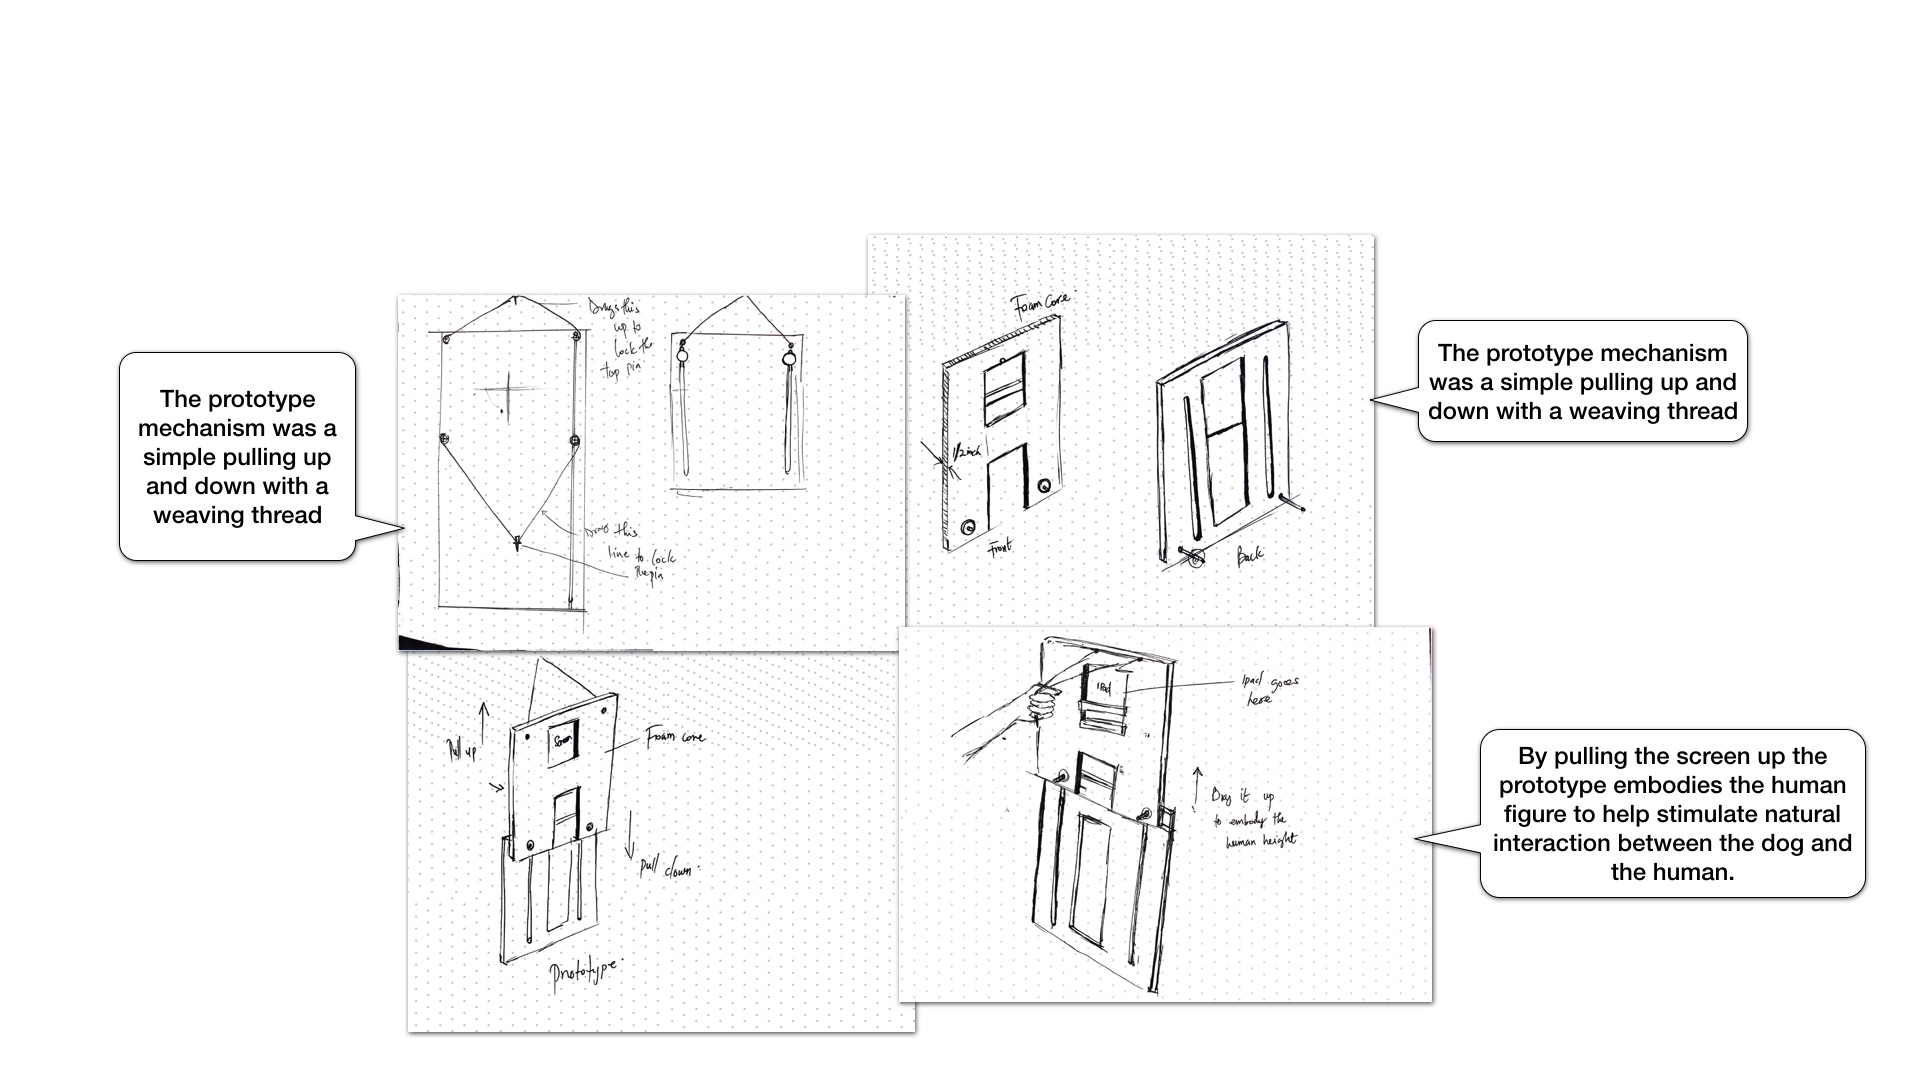 The prototype
mechanism was a
simple pulling up
and down with a
weaving thread
Drags this
up to
lock the
top pin
Drag this
line to lock
the pin
Foam Core
1/2 inch
Front
Back
The prototype mechanism
was a simple pulling up and
down with a weaving thread
Pull up
Screen
Foam core
Pull down
Prototype
iPad
Ipad goes
here
Drag it up
to embody the
human height
By pulling the screen up the
prototype embodies the human
figure to help stimulate natural
interaction between the dog and
the human.